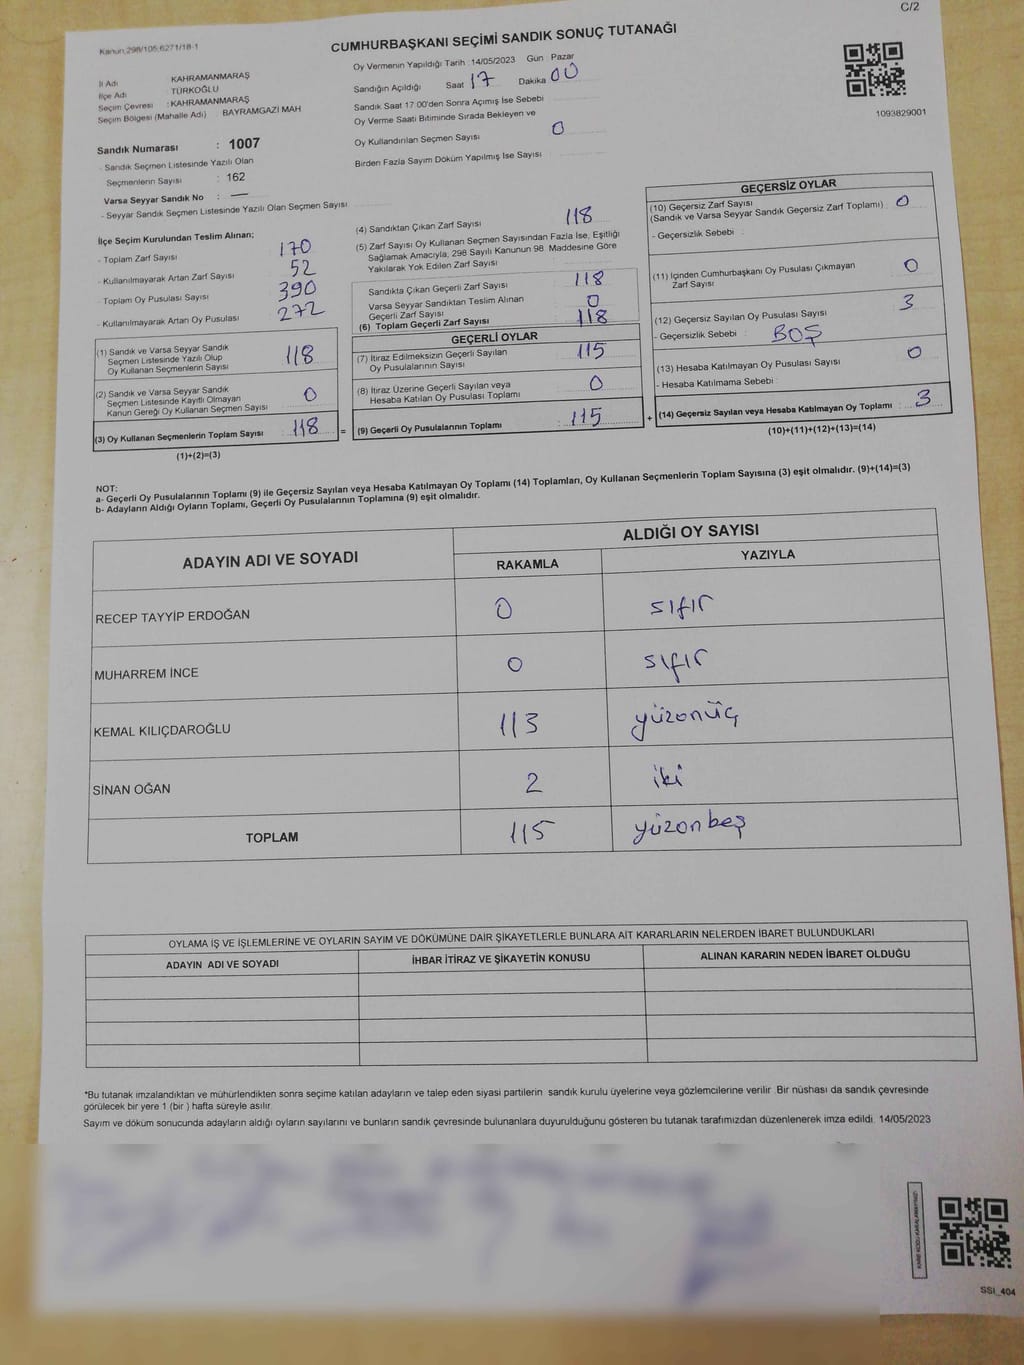 C/2
Kanun,298/105;6271/18-1
CUMHURBAŞKANI SEÇİMİ SANDIK SONUÇ TUTANAĞI
İl Adı KAHRAMANMARAŞ
İlçe Adı TÜRKOĞLU
Seçim Çevresi : KAHRAMANMARAŞ
Seçim Bölgesi (Mahalle Adı) BAYRAMGAZİ MAH
Sandık Numarası : 1007
- Sandık Seçmen Listesinde Yazılı Olan
Seçmenlerin Sayısı : 162
Varsa Seyyar Sandık No : —
- Seyyar Sandık Seçmen Listesinde Yazılı Olan Seçmen Sayısı
Oy Vermenin Yapıldığı Tarih : 14/05/2023 Gün Pazar
Sandığın Açıldığı Saat 17 Dakika 00
Sandık Saat 17:00'den Sonra Açımış İse Sebebi
Oy Verme Saati Bitiminde Sırada Bekleyen ve
Oy Kullandırılan Seçmen Sayısı 0
Birden Fazla Sayım Döküm Yapılmış İse Sayısı
1093829001
İlçe Seçim Kurulundan Teslim Alınan;
- Toplam Zarf Sayısı 170
- Kullanılmayarak Artan Zarf Sayısı 52
- Toplam Oy Pusulası Sayısı 390
- Kullanılmayarak Artan Oy Pusulası 272
(1) Sandık ve Varsa Seyyar Sandık
Seçmen Listesinde Yazılı Olup
Oy Kullanan Seçmenlerin Sayısı 118
(2) Sandık ve Varsa Seyyar Sandık
Seçmen Listesinde Kayıtlı Olmayan
Kanun Gereği Oy Kullanan Seçmen Sayısı 0
(3) Oy Kullanan Seçmenlerin Toplam Sayısı : 118 =
(1)+(2)=(3)
(4) Sandıktan Çıkan Zarf Sayısı 118
(5) Zarf Sayısı Oy Kullanan Seçmen Sayısından Fazla İse, Eşitliği
Sağlamak Amacıyla, 298 Sayılı Kanunun 98. Maddesine Göre
Yakılarak Yok Edilen Zarf Sayısı
Sandıkta Çıkan Geçerli Zarf Sayısı 118
Varsa Seyyar Sandıktan Teslim Alınan
Geçerli Zarf Sayısı 0
(6) Toplam Geçerli Zarf Sayısı 118
GEÇERLİ OYLAR
(7) İtiraz Edilmeksizin Geçerli Sayılan
Oy Pusulalarının Sayısı 115
(8) İtiraz Üzerine Geçerli Sayılan veya
Hesaba Katılan Oy Pusulası Toplamı 0
(9) Geçerli Oy Pusulalarının Toplamı : 115 +
GEÇERSİZ OYLAR
(10) Geçersiz Zarf Sayısı
(Sandık ve Varsa Seyyar Sandık Geçersiz Zarf Toplamı) : 0
- Geçersizlik Sebebi :
(11) İçinden Cumhurbaşkanı Oy Pusulası Çıkmayan
Zarf Sayısı 0
(12) Geçersiz Sayılan Oy Pusulası Sayısı 3
- Geçersizlik Sebebi : BOŞ
(13) Hesaba Katılmayan Oy Pusulası Sayısı 0
- Hesaba Katılmama Sebebi :
(14) Geçersiz Sayılan veya Hesaba Katılmayan Oy Toplamı : 3
(10)+(11)+(12)+(13)=(14)
NOT:
a- Geçerli Oy Pusulalarının Toplamı (9) ile Geçersiz Sayılan veya Hesaba Katılmayan Oy Toplamı (14) Toplamları, Oy Kullanan Seçmenlerin Toplam Sayısına (3) eşit olmalıdır. (9)+(14)=(3)
b- Adayların Aldığı Oyların Toplamı, Geçerli Oy Pusulalarının Toplamına (9) eşit olmalıdır.
ADAYIN ADI VE SOYADI ALDIĞI OY SAYISI
RAKAMLA YAZIYLA
RECEP TAYYİP ERDOĞAN 0 sıfır
MUHARREM İNCE 0 sıfır
KEMAL KILIÇDAROĞLU 113 yüzonüç
SİNAN OĞAN 2 iki
TOPLAM 115 yüzonbeş
OYLAMA İŞ VE İŞLEMLERİNE VE OYLARIN SAYIM VE DÖKÜMÜNE DAİR ŞİKAYETLERLE BUNLARA AİT KARARLARIN NELERDEN İBARET BULUNDUKLARI
ADAYIN ADI VE SOYADI İHBAR İTİRAZ VE ŞİKAYETİN KONUSU ALINAN KARARIN NEDEN İBARET OLDUĞU
*Bu tutanak imzalandıktan ve mühürlendikten sonra seçime katılan adayların ve talep eden siyasi partilerin sandık kurulu üyelerine veya gözlemcilerine verilir. Bir nüshası da sandık çevresinde
görülecek bir yere 1 (bir ) hafta süreyle asılır.
Sayım ve döküm sonucunda adayların aldığı oyların sayılarını ve bunların sandık çevresinde bulunanlara duyurulduğunu gösteren bu tutanak tarafımızdan düzenlenerek imza edildi. 14/05/2023
SSI_404